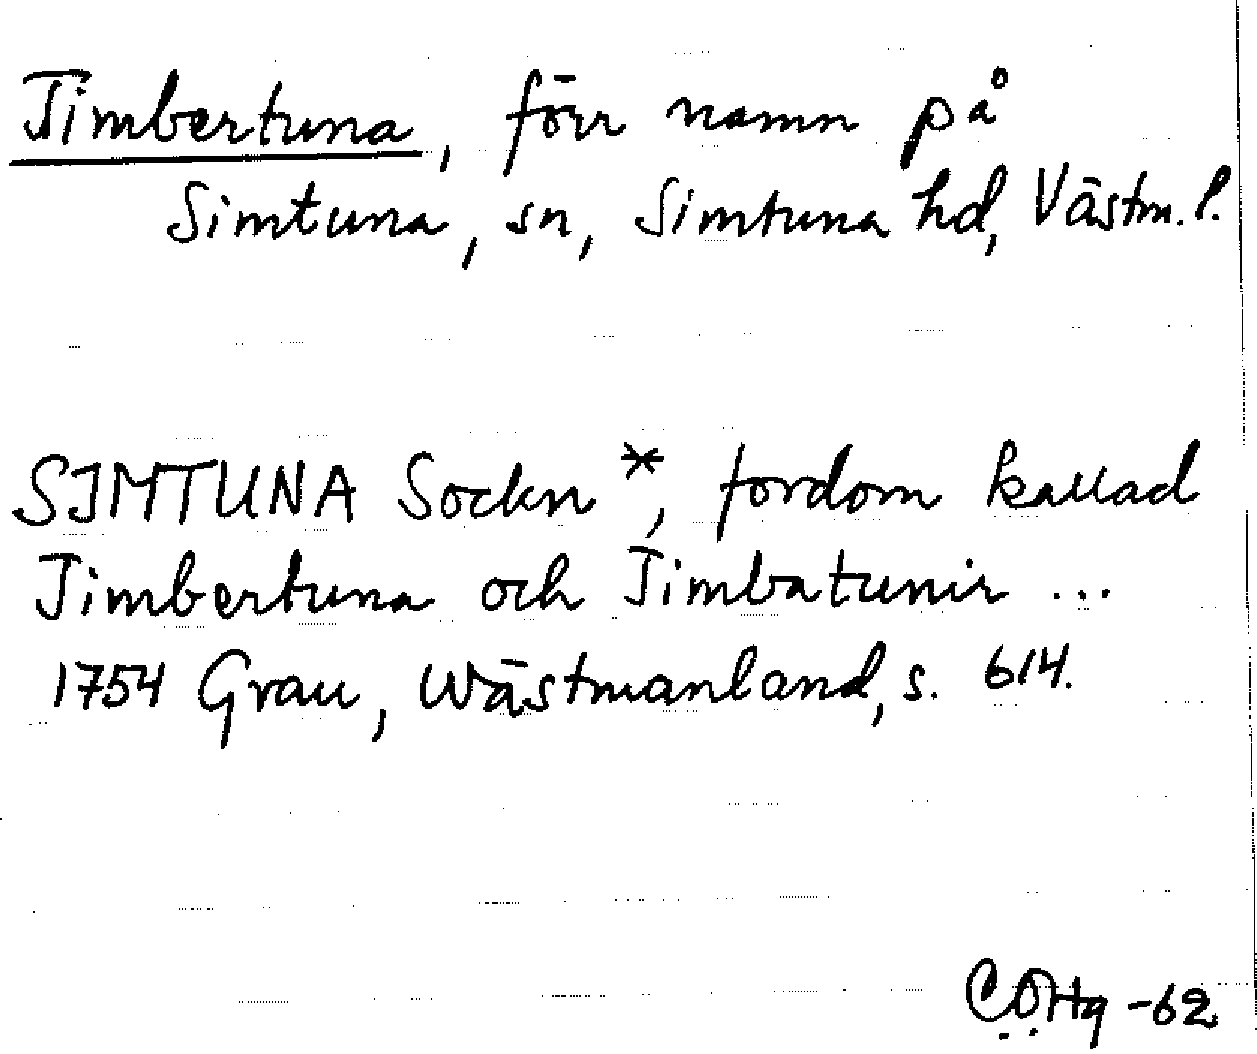 Timbertuna, förr namn på
Simtuna, sn, Simtuna hd, Västm. l.
SIMTUNA Sockn *, fordom kallad
Timbertuna och Timbatunir ...
1754 Grau, Wästmanland, s. 614.
C.Ö.Hg -62